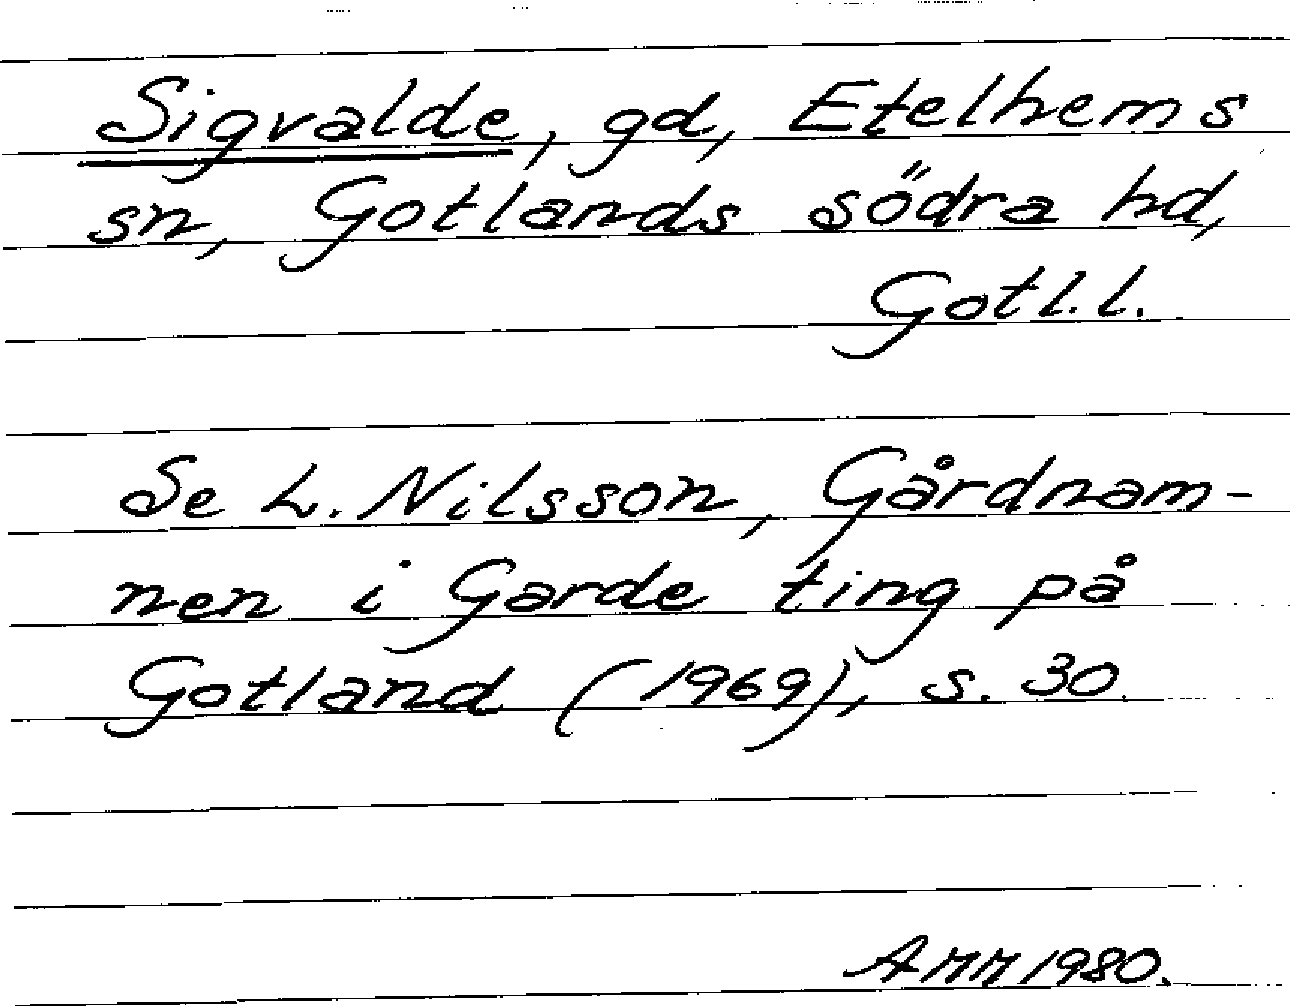 Sigvalde, gd, Etelhems
sn, Gotlands södra hd,
Gotl.l.
Se L. Nilsson, Gårdnam-
nen i Garde ting på
Gotland (1969), s. 30.
AMM 1980.